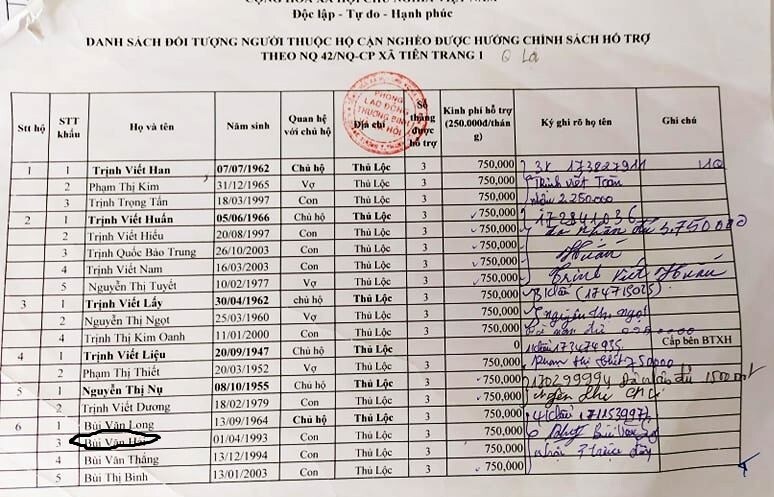 CỘNG HÒA XÃ HỘI CHỦ NGHĨA VIỆT NAM
Độc lập - Tự do - Hạnh phúc
DANH SÁCH ĐỐI TƯỢNG NGƯỜI THUỘC HỘ CẬN NGHÈO ĐƯỢC HƯỞNG CHÍNH SÁCH HỖ TRỢ
THEO NQ 42/NQ-CP XÃ TIÊN TRANG 1
Stt hộ STT khẩu Họ và tên Năm sinh Quan hệ với chủ hộ Địa chỉ Số tháng được hỗ trợ Kinh phí hỗ trợ (250.000đ/tháng) Ký ghi rõ họ tên Ghi chú
PHÒNG LAO ĐỘNG THƯƠNG BINH XÃ HỘI
1 1 Trịnh Viết Han 07/07/1962 Chủ hộ Thủ Lộc 3 750,000
2 Phạm Thị Kim 31/12/1965 Vợ Thủ Lộc 3 750,000 Trịnh Viết Toàn
3 Trịnh Trọng Tấn 18/03/1997 Con Thủ Lộc 3 750,000 2.250.000
2 1 Trịnh Viết Huấn 05/06/1966 Chủ hộ Thủ Lộc 3 750,000 172841036
2 Trịnh Viết Hiếu 20/08/1997 Con Thủ Lộc 3 750,000 nhận đủ 3.750000
3 Trịnh Quốc Bảo Trung 26/10/2003 Con Thủ Lộc 3 750,000 Huấn
4 Trịnh Viết Nam 16/03/2003 Con Thủ Lộc 3 750,000 Trịnh Viết Huấn
5 Nguyễn Thị Tuyết 10/02/1977 Vợ Thủ Lộc 3 750,000
3 1 Trịnh Viết Lấy 30/04/1962 chủ hộ Thủ Lộc 3 750,000
2 Nguyễn Thị Ngọt 25/03/1960 Vợ Thủ Lộc 3 750,000 Nguyễn Thị Ngọt
4 Trịnh Thị Kim Oanh 11/01/2000 Con Thủ Lộc 3 750,000
4 1 Trịnh Viết Liệu 20/09/1947 Chủ hộ Thủ Lộc 3 0 Cấp bên BTXH
2 Phạm Thị Thiết 20/03/1952 Vợ Thủ Lộc 3 750,000 Phạm Thị Thiết 750000
5 1 Nguyễn Thị Nụ 08/10/1955 Chủ hộ Thủ Lộc 3 750,000
2 Trịnh Viết Dương 18/02/1979 Con Thủ Lộc 3 750,000
6 1 Bùi Văn Long 13/09/1964 Chủ hộ Thủ Lộc 3 750,000
3 Bùi Văn 01/04/1993 Con Thủ Lộc 3 750,000
4 Bùi Văn Thắng 13/12/1994 Con Thủ Lộc 3 750,000
5 Bùi Thị Bình 13/01/2003 Con Thủ Lộc 3 750,000